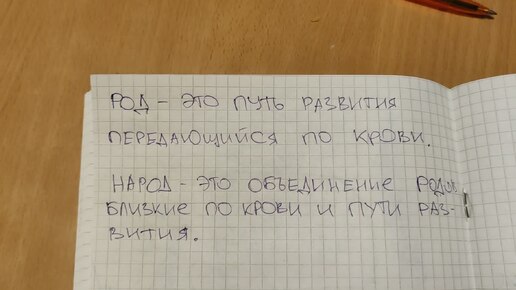 РОД - ЭТО ПУТЬ РАЗВИТИЯ
ПЕРЕДАЮЩИЙСЯ ПО КРОВИ.
НАРОД - ЭТО ОБЪЕДИНЕНИЕ РОДОВ
БЛИЗКИЕ ПО КРОВИ И ПУТИ РАЗ-
ВИТИЯ.